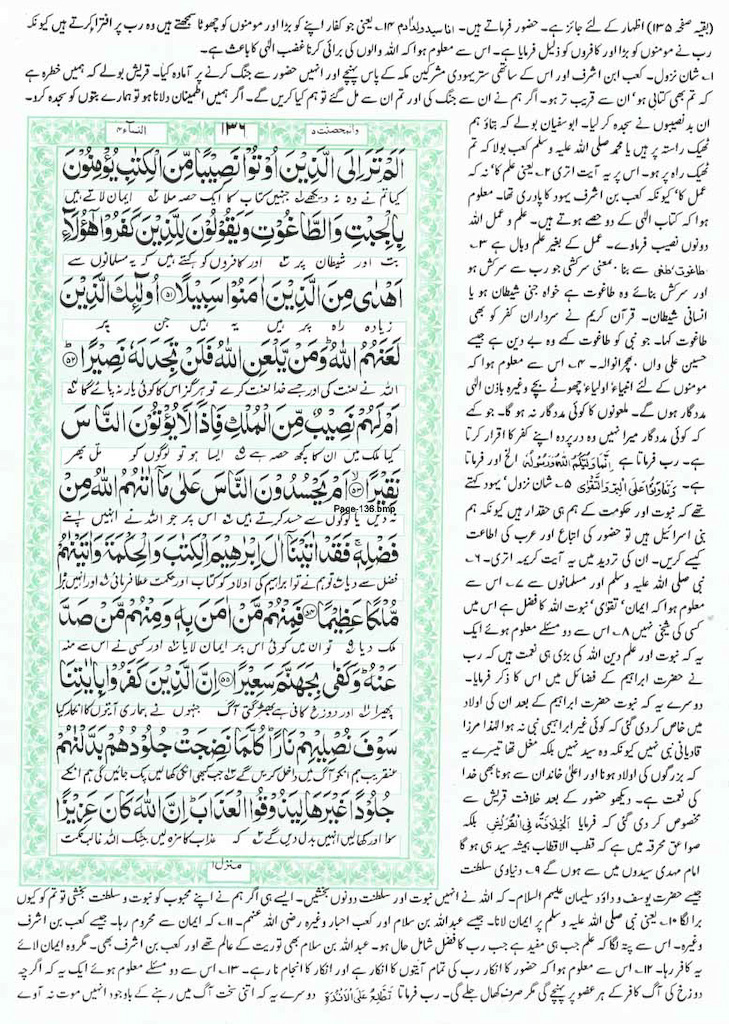 (بقیہ صفحہ ۱۳۵) اظہار کے لئے جائز ہے۔ حضور فرماتے ہیں۔ انا سید ولد ادم ۱۴۔ یعنی جو کفار اپنے کو بڑا اور مومنوں کو چھوٹا سمجھتے ہیں وہ رب پر افتراء کرتے ہیں کیونکہ
رب نے مومنوں کو بڑا اور کافروں کو ذلیل فرمایا ہے۔ اس سے معلوم ہوا کہ اللہ والوں کی برائی کرنا غضب الٰہی کا باعث ہے۔
۱۔ شان نزول۔ کعب ابن اشرف اور اس کے ساتھی ستر یہودی مشرکین مکہ کے پاس پہنچے اور انہیں حضور سے جنگ کرنے پر آمادہ کیا۔ قریش بولے کہ ہمیں خطرہ ہے
کہ تم بھی کتابی ہو' ان سے قریب تر ہو۔ اگر ہم نے ان سے جنگ کی اور تم ان سے مل گئے تو ہم کیا کریں گے۔ اگر ہمیں اطمینان دلانا ہو تو ہمارے بتوں کو سجدہ کرو۔
ان بد نصیبوں نے سجدہ کر لیا۔ ابوسفیان بولے کہ بتاؤ ہم
ٹھیک راستہ پر ہیں یا محمد صلی اللہ علیہ وسلم کعب بولا کہ تم
ٹھیک راہ پر ہو۔ اس پر یہ آیت اتری ۲۔ یعنی علم کا' نہ کہ
عمل کا' کیونکہ کعب بن اشرف یہود کا پادری تھا۔ معلوم
ہوا کہ کتاب الٰہی کے دو حصے ہوتے ہیں۔ علم و عمل اللہ
دونوں نصیب فرماوے۔ عمل کے بغیر علم وبال ہے ۳۔
طاغوت طغی سے بنا بمعنی سرکشی جو رب سے سرکش ہو
اور سرکش بنائے وہ طاغوت ہے خواہ جنی شیطان ہو یا
انسانی شیطان۔ قرآن کریم نے سرداران کفر کو بھی
طاغوت کہا۔ جو نبی کو طاغوت کہے وہ بے دین ہے جیسے
حسین علی واں بھچرانوالہ۔ ۴۔ اس سے معلوم ہوا کہ
مومنوں کے لئے انبیاء' اولیاء' چھوٹے بچے وغیرہ باذن الٰہی
مددگار ہوں گے۔ ملعونوں کا کوئی مددگار نہ ہو گا۔ جو کہے
کہ کوئی مددگار میرا نہیں وہ درپردہ اپنے کفر کا اقرار کرتا
ہے۔ رب فرماتا ہے انما ولیکم اللہ ورسولہ الخ اور فرماتا
ہے۔ وتعاونوا علی البر والتقوی ۵۔ شان نزول' یہود کہتے
تھے کہ نبوت اور حکومت کے ہم ہی حقدار ہیں کیونکہ ہم
بنی اسرائیل ہیں تو حضور کی اتباع اور عرب کی اطاعت
کیسے کریں۔ ان کی تردید میں یہ آیت کریمہ اتری۔ ۶۔
نبی صلی اللہ علیہ وسلم اور مسلمانوں سے ۷۔ اس سے
معلوم ہوا کہ ایمان' تقویٰ' نبوت اللہ کا فضل ہے اس میں
کسی کی شیخی نہیں ۸۔ اس سے دو مسئلے معلوم ہوئے ایک
یہ کہ نبوت اور علم دین اللہ کی بڑی ہی نعمت ہیں کہ رب
نے حضرت ابراہیم کے فضائل میں اس کا ذکر فرمایا۔
دوسرے یہ کہ نبوت حضرت ابراہیم کے بعد ان کی اولاد
میں خاص کر دی گئی کہ کوئی غیر ابراہیمی نبی نہ ہوا لہٰذا مرزا
قادیانی نبی نہیں کیونکہ وہ سید نہیں بلکہ مغل تھا تیسرے یہ
کہ بزرگوں کی اولاد ہونا اور اعلیٰ خاندان سے ہونا بھی خدا
کی نعمت ہے۔ دیکھو حضور کے بعد خلافت قریش سے
مخصوص کر دی گئی کہ فرمایا الخلافۃ فی القریش بلکہ
صواعق محرقہ میں ہے کہ قطب الاقطاب ہمیشہ سید ہی ہو گا
امام مہدی سیدوں میں سے ہوں گے ۹۔ دنیاوی سلطنت
والمحصنت ۵ ۱۳۶ النسآء ۴
اَلَمْ تَرَ اِلَى الَّذِيْنَ اُوْتُوْا نَصِيْبًا مِّنَ الْكِتٰبِ يُؤْمِنُوْنَ
کیا تم نے وہ نہ دیکھے جنہیں کتاب کا ایک حصہ ملا ایمان لاتے ہیں
بِالْجِبْتِ وَالطَّاغُوْتِ وَيَقُوْلُوْنَ لِلَّذِيْنَ كَفَرُوْا هٰٓؤُلَآءِ
بت اور شیطان پر اور کافروں کو کہتے ہیں کہ یہ مسلمانوں سے
اَهْدٰى مِنَ الَّذِيْنَ اٰمَنُوْا سَبِيْلًا ۵۱ اُولٰٓئِكَ الَّذِيْنَ
زیادہ راہ پر ہیں یہ ہیں جن پر
لَعَنَهُمُ اللّٰهُ وَمَنْ يَّلْعَنِ اللّٰهُ فَلَنْ تَجِدَ لَهٗ نَصِيْرًا ۵۲
اللہ نے لعنت کی اور جسے خدا لعنت کرے تو ہرگز اس کا کوئی یار نہ پائے گا
اَمْ لَهُمْ نَصِيْبٌ مِّنَ الْمُلْكِ فَاِذًا لَّا يُؤْتُوْنَ النَّاسَ
کیا ملک میں ان کا کچھ حصہ ہے ایسا ہو تو لوگوں کو تل بھر
نَقِيْرًا ۵۳ اَمْ يَحْسُدُوْنَ النَّاسَ عَلٰى مَآ اٰتٰىهُمُ اللّٰهُ مِنْ
Page-136.bmp
نہ دیں یا لوگوں سے حسد کرتے ہیں اس پر جو اللہ نے انہیں اپنے
فَضْلِهٖ فَقَدْ اٰتَيْنَآ اٰلَ اِبْرٰهِيْمَ الْكِتٰبَ وَالْحِكْمَةَ وَاٰتَيْنٰهُمْ
فضل سے دیا تو ہم نے تو ابراہیم کی اولاد کو کتاب اور حکمت عطا فرمائی اور انہیں بڑا
مُّلْكًا عَظِيْمًا ۵۴ فَمِنْهُمْ مَّنْ اٰمَنَ بِهٖ وَمِنْهُمْ مَّنْ صَدَّ
ملک دیا تو ان میں کوئی اس پر ایمان لایا اور کسی نے اس سے منہ
عَنْهُ وَكَفٰى بِجَهَنَّمَ سَعِيْرًا ۵۵ اِنَّ الَّذِيْنَ كَفَرُوْا بِاٰيٰتِنَا
پھیرا اور دوزخ کافی ہے بھڑکتی آگ جنہوں نے ہماری آیتوں کا انکار کیا
سَوْفَ نُصْلِيْهِمْ نَارًا كُلَّمَا نَضِجَتْ جُلُوْدُهُمْ بَدَّلْنٰهُمْ
عنقریب ہم انکو آگ میں داخل کریں گے جب کبھی انکی کھالیں پک جائیں گی ہم انکے
جُلُوْدًا غَيْرَهَا لِيَذُوْقُوا الْعَذَابَ اِنَّ اللّٰهَ كَانَ عَزِيْزًا
سوا اور کھالیں انہیں بدل دیں گے کہ عذاب کا مزہ لیں بیشک اللہ غالب حکمت
منزل۱
جیسے حضرت یوسف و داؤد سلیمان علیہم السلام۔ کہ اللہ نے انہیں نبوت اور سلطنت دونوں بخشیں۔ ایسے ہی اگر ہم نے اپنے محبوب کو نبوت و سلطنت بخشی تو تم کو کیوں
برا لگا ۱۰۔ یعنی نبی صلی اللہ علیہ وسلم پر ایمان لانا۔ جیسے عبداللہ بن سلام اور کعب احبار وغیرہ رضی اللہ عنہم۔ ۱۱۔ کہ ایمان سے محروم رہا۔ جیسے کعب بن اشرف
وغیرہ۔ اس سے پتہ لگا کہ علم جب ہی مفید ہے جب رب کا فضل شامل حال ہو۔ عبداللہ بن سلام بھی توریت کے عالم تھے اور کعب بن اشرف بھی۔ مگر وہ ایمان لائے
یہ کافر رہا۔ ۱۲۔ اس سے معلوم ہوا کہ حضور کا انکار رب کی تمام آیتوں کا انکار ہے اور انکار کا انجام نار ہے۔ ۱۳۔ اس سے دو مسئلے معلوم ہوئے ایک یہ کہ اگرچہ
دوزخ کی آگ کافر کے ہر عضو پر پہنچے گی مگر صرف کھال جلے گی۔ رب فرماتا تطلع علی الافدۃ دوسرے یہ کہ اتنی سخت آگ میں رہنے کے باوجود انہیں موت نہ آوے